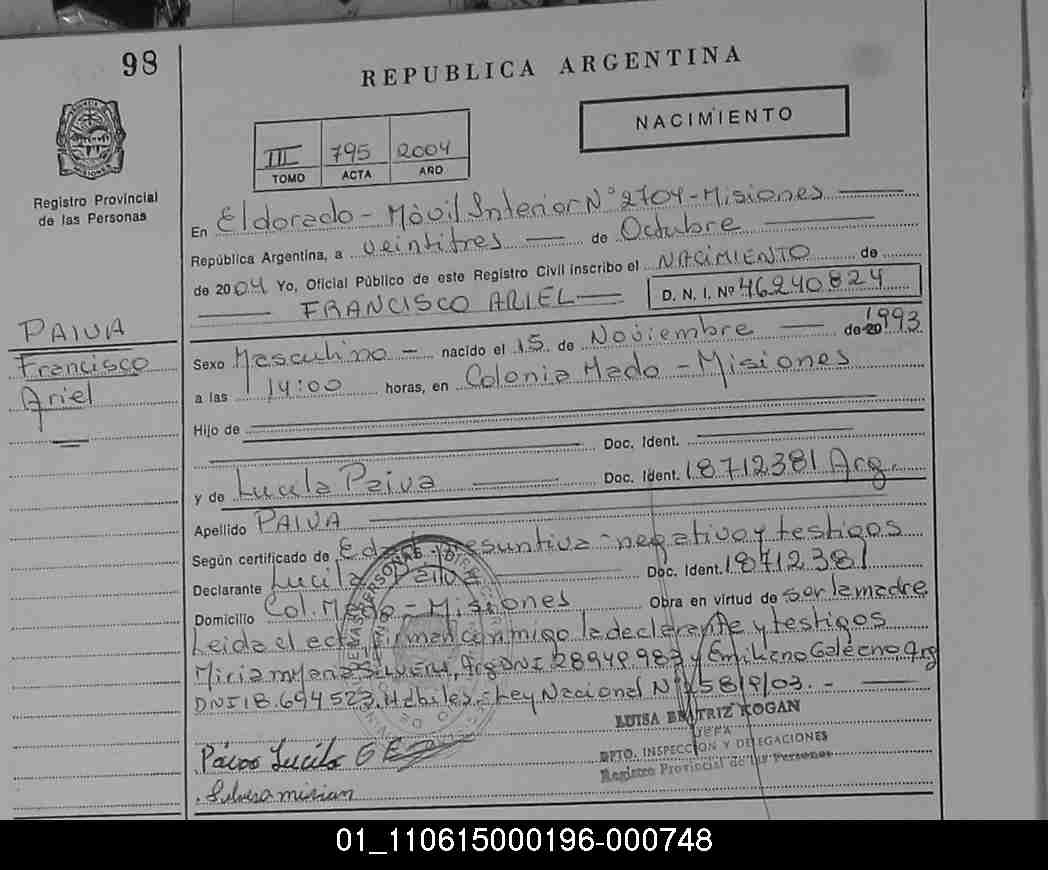 98
REPUBLICA ARGENTINA
NACIMIENTO
III 795 2004
TOMO ACTA AÑO
Registro Provincial
de las Personas
En Eldorado - Móvil Interior N° 2704 - Misiones
República Argentina, a veintitres de Octubre
de 2004 Yo, Oficial Público de este Registro Civil inscribo el NACIMIENTO de
FRANCISCO ARIEL D. N. I. Nº 46240824
PAIVA
Francisco
Ariel
Sexo Masculino - nacido el 15 de Noviembre de 20 1993
a las 14:00 horas, en Colonia Mado - Misiones
Hijo de
Doc. Ident.
y de Lucila Paiva Doc. Ident. 18712381 Arg.
Apellido PAIVA
Según certificado de Edad presuntiva - negativo y testigos
Declarante Lucila Paiva Doc. Ident. 18712381
Domicilio Col. Mado - Misiones Obra en virtud de ser la madre
Leida el acta firman conmigo la declarante y testigos
Miriam María Arg DNI 28949983 y Emiliano Galeano, Arg
DNI 18.694523, Habiles - Ley Nacional N° 25819/03. -
LUISA BEATRIZ KOGAN
JEFA
DPTO. INSPECCION Y DELEGACIONES
Registro Provincial de las Personas
Paiva Lucila G E
Silvera miriam
01_110615000196-000748